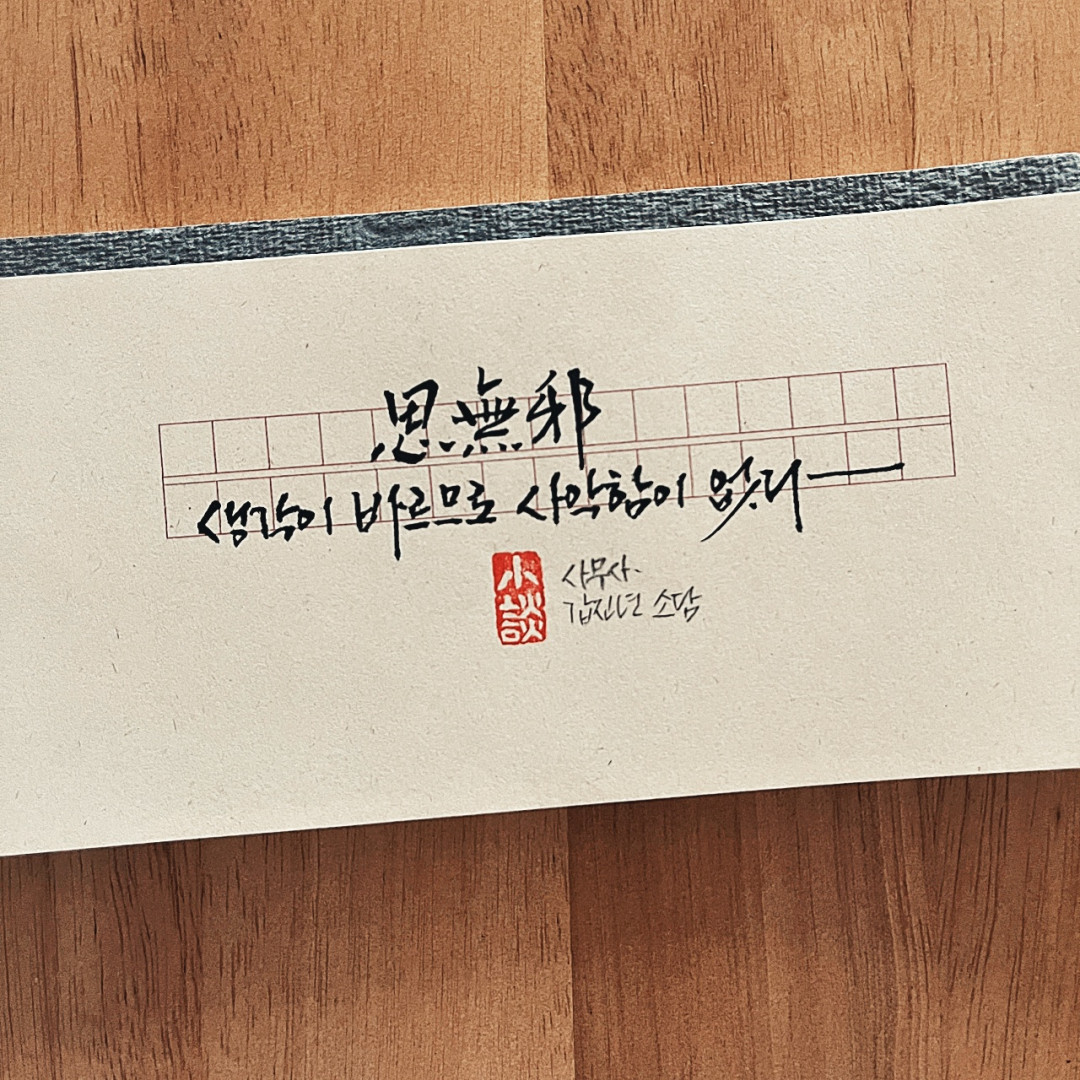 思無邪
생각이 바르므로 사악함이 없다
小談
사무사.
갑진년 소담